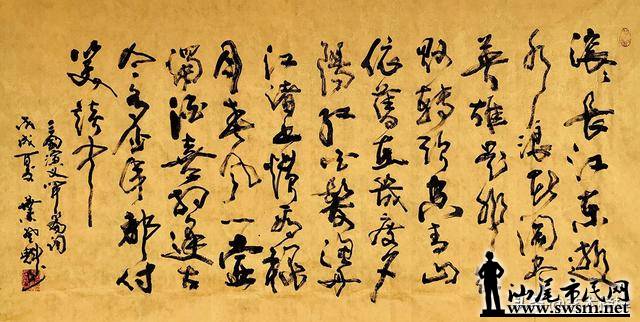 滚滚長江東逝
水浪花淘尽
英雄是非成
敗轉頭空青山
依舊在幾度夕
陽紅白髮漁樵
江渚上慣看秋
月春風一壺
濁酒喜相逢古
今多少事都付
笑談中
三国演义开篇词
丙戌夏
汕尾市民网
www.swsm.net